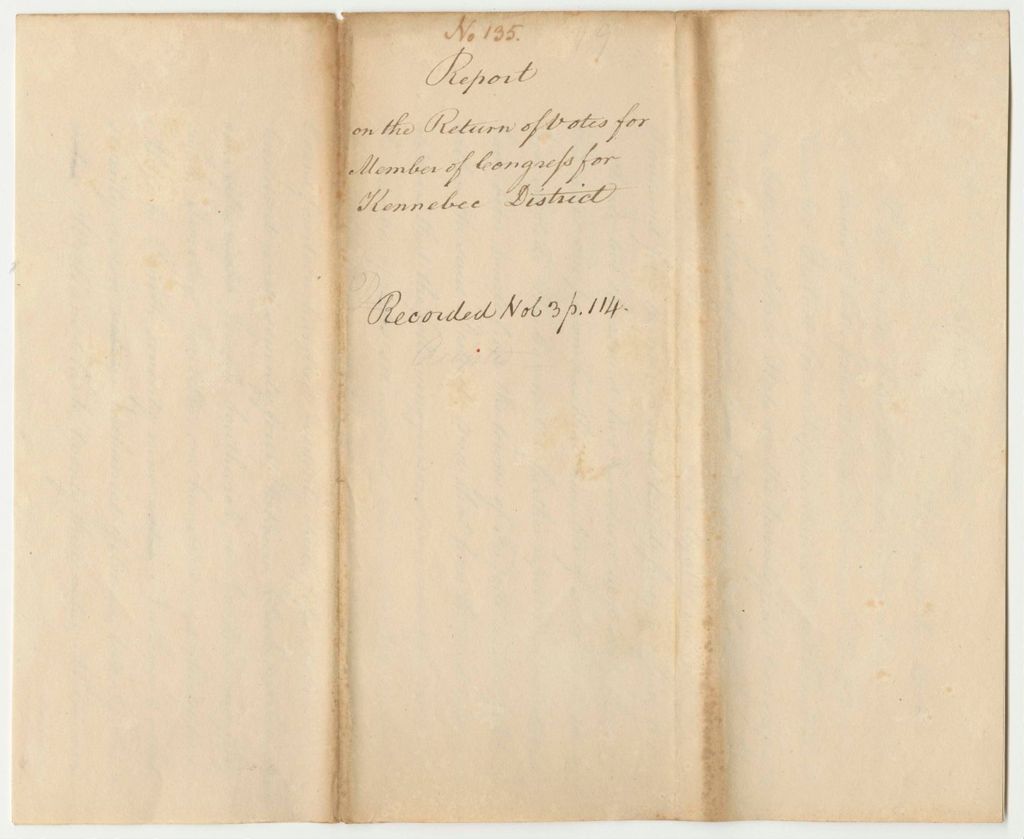 No 135.
Report
on the Return of Votes for
Member of Congreſs for
Kennebec District
Recorded Vol 3 p. 114.